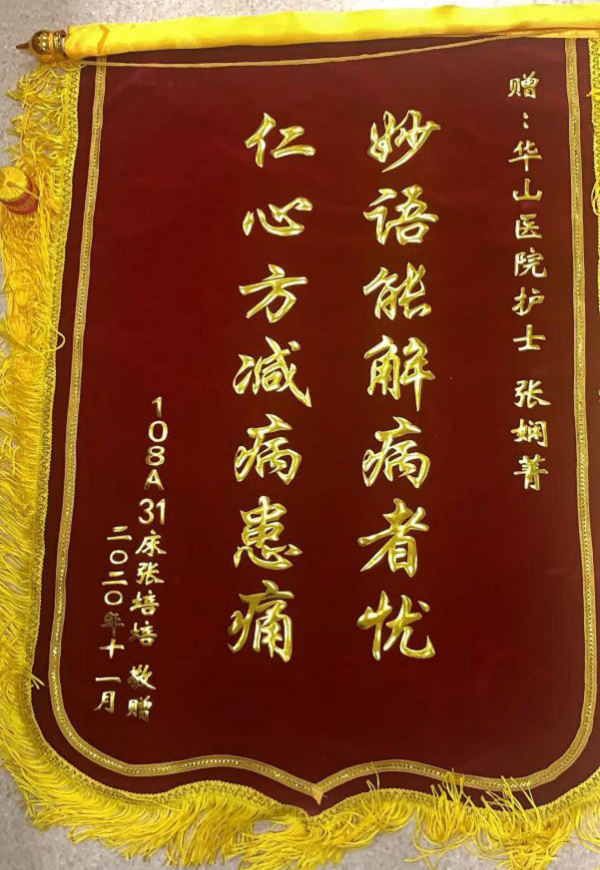 赠：华山医院护士 张娴菁
妙语能解病者忧
仁心方减病患痛
108A 31床张培培 敬赠
二〇二〇年十一月